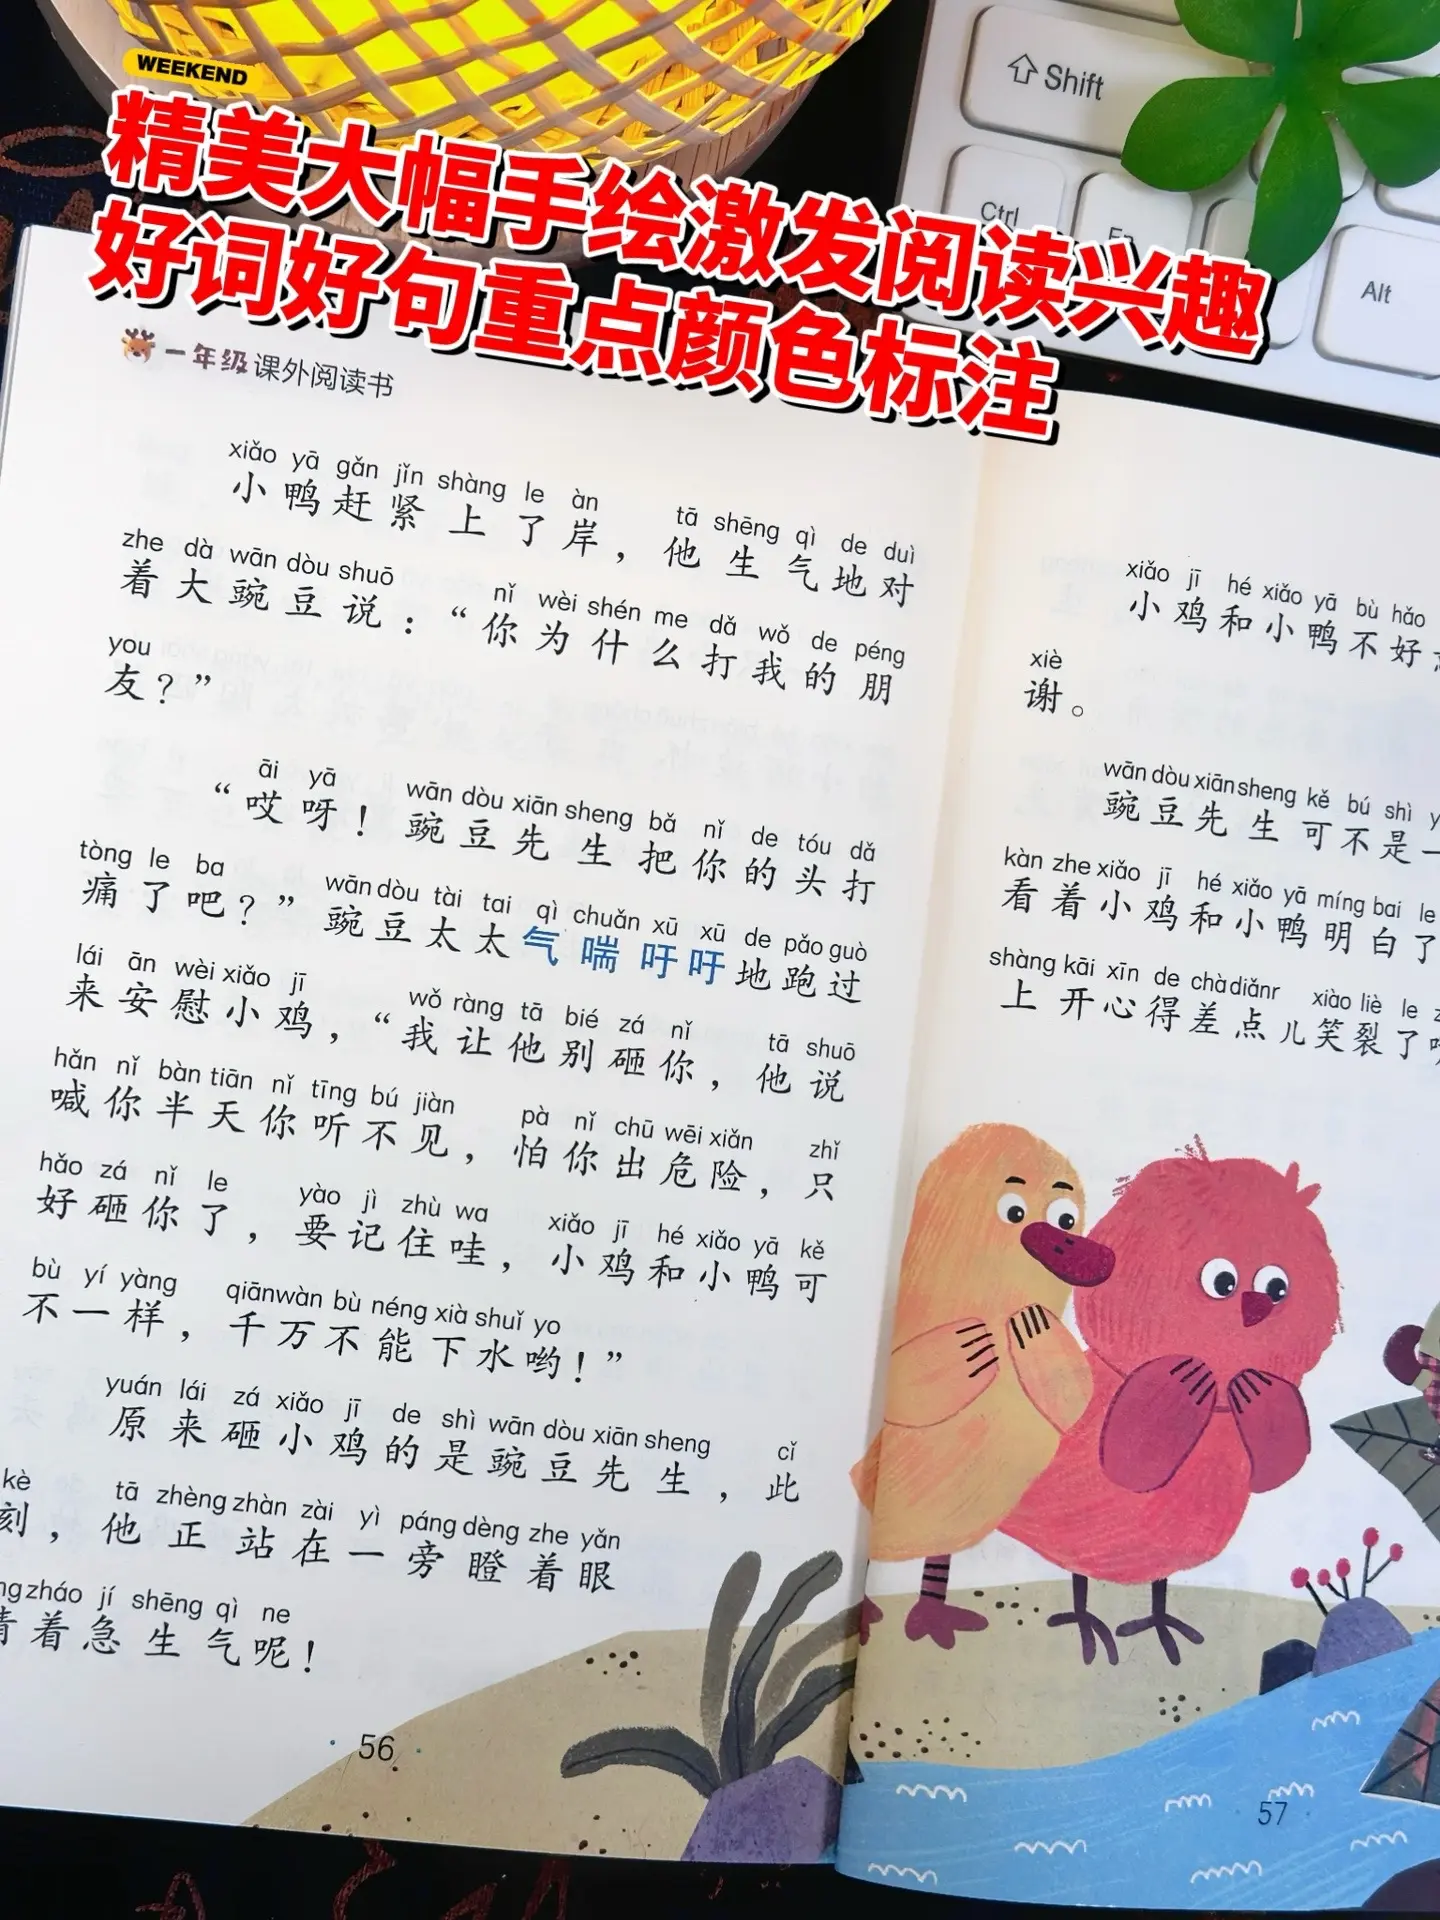 WEEKEND
精美大幅手绘激发阅读兴趣
好词好句重点颜色标注
Shift
Ctrl
Alt
一年级课外阅读书
xiǎo yā gǎn jǐn shàng le àn tā shēng qì de duì
小鸭赶紧上了岸，他生气地对
zhe dà wān dòu shuō nǐ wèi shén me dǎ wǒ de péng
着大豌豆说：“你为什么打我的朋
you
友？”
āi yā wān dòu xiān sheng bǎ nǐ de tóu dǎ
“哎呀！豌豆先生把你的头打
tòng le ba wān dòu tài tai qì chuǎn xū xū de pǎo guò
痛了吧？”豌豆太太气喘吁吁地跑过
lái ān wèi xiǎo jī wǒ ràng tā bié zá nǐ tā shuō
来安慰小鸡，“我让他别砸你，他说
hǎn nǐ bàn tiān nǐ tīng bú jiàn pà nǐ chū wēi xiǎn zhǐ
喊你半天你听不见，怕你出危险，只
hǎo zá nǐ le yào jì zhù wa xiǎo jī hé xiǎo yā kě
好砸你了，要记住哇，小鸡和小鸭可
bù yí yàng qiān wàn bù néng xià shuǐ yo
不一样，千万不能下水哟！”
yuán lái zá xiǎo jī de shì wān dòu xiān sheng cǐ
原来砸小鸡的是豌豆先生，此
kè tā zhèng zhàn zài yì páng dèng zhe yǎn
刻，他正站在一旁瞪着眼
zháo jí shēng qì ne
着急生气呢！
56
xiǎo jī hé xiǎo yā bù hǎo
小鸡和小鸭不好
xiè
谢。
wān dòu xiān sheng kě bú shì
豌豆先生可不是一
kàn zhe xiǎo jī hé xiǎo yā míng bai le
看着小鸡和小鸭明白了
shàng kāi xīn de chà diǎnr xiào liè le
上开心得差点儿笑裂了
57